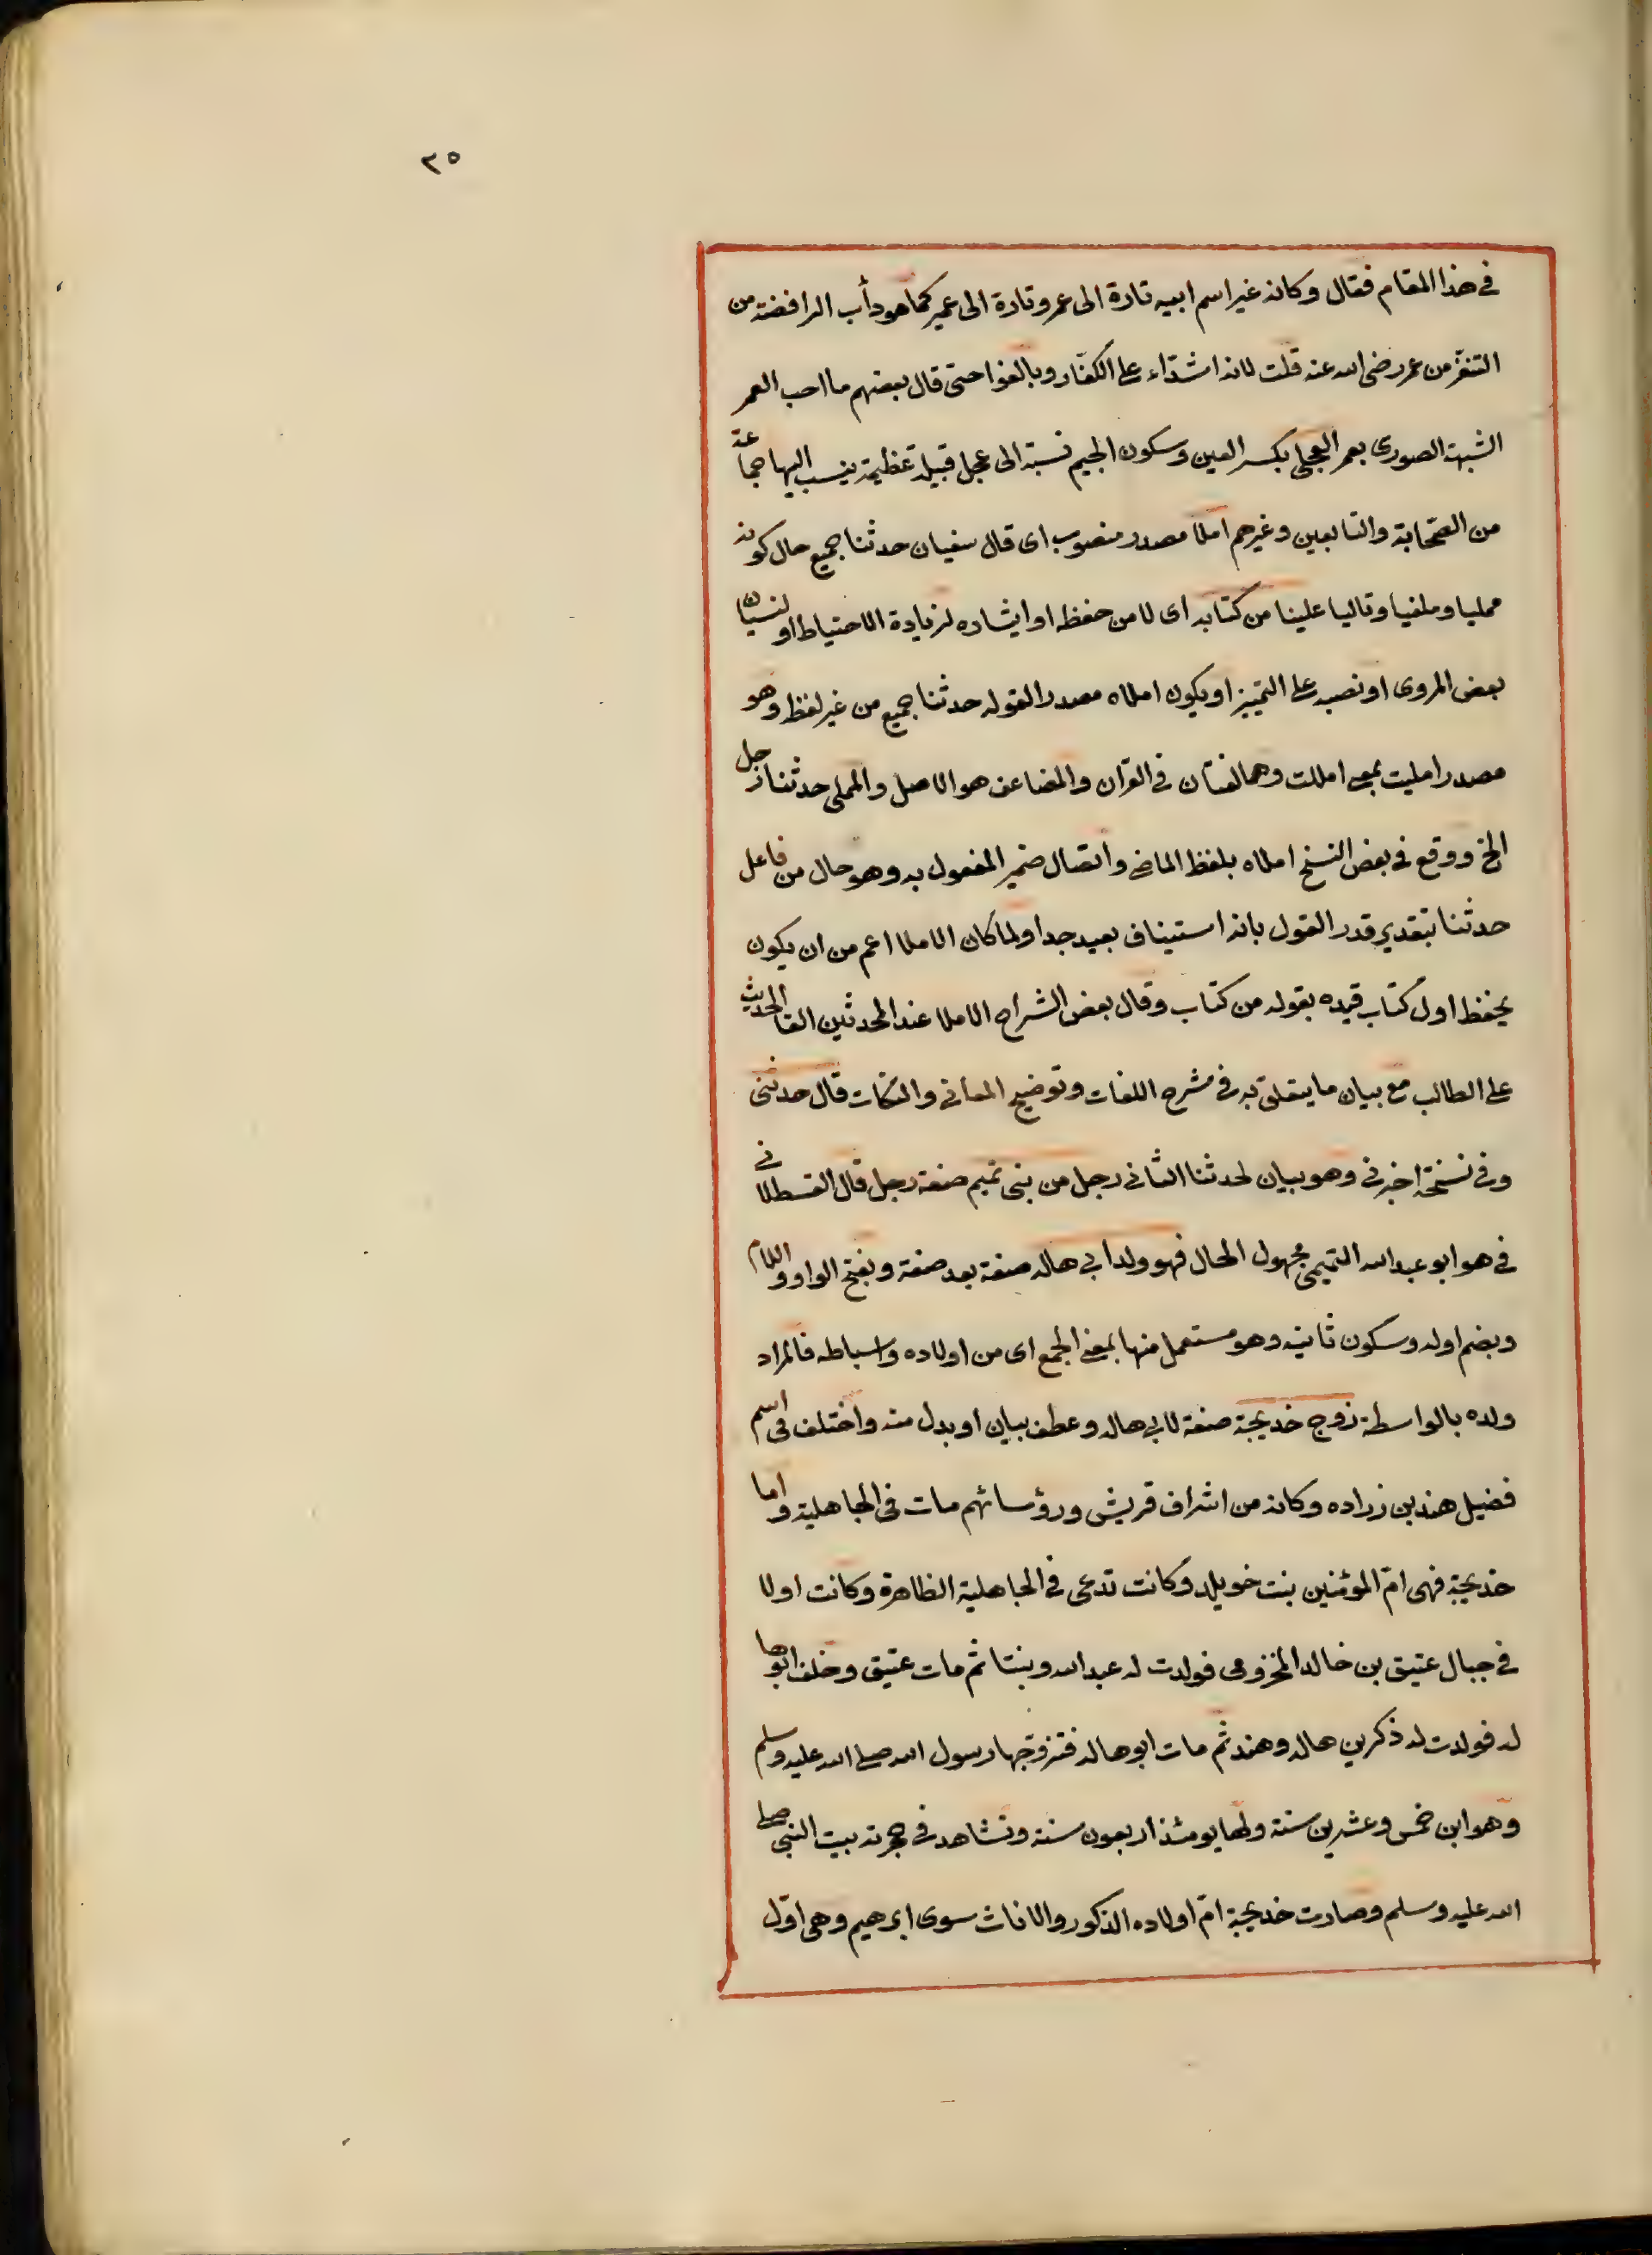 ٢٥
في هذا المقام فقال وكانه غير اسم ابيه تارة الى عمر وتارة الى عمير كما هو دأب الرافضة من
التنفر من عمر رضى الله عنه قلت لانه اشدّاء على الكفّار وبالغوا حتى قال بعضهم ما احب العمر
الشبهة الصورى بعمر العجلى بكسر العين وسكون الجيم نسبة الى عجل قبيلة عظيمة ينسب اليها جماعة
من الصّحابة والتابعين وغيرهم املا مصدر منصوب اى قال سفيان حدثنا جميع حال كونه
ممليا وملقيا وتاليا علينا من كتابه اى لا من حفظه او ايثاره لزيادة الاحتياط او لنسيان
بعض المروى او نصبه على التميّيز او يكون املاه مصدرا لقوله حدثنا جميع من غير لفظه وهو
مصدر امليت بمعنى امللت وهما لغتان في القرآن والمضاعف هو الاصل والمملى حدثنا رجل
الخ ووقع في بعض النسخ املاه بلفظ الماضى واتصال ضمير المفعول به وهو حال من فاعل
حدثنا بتقدير قد والقول بانه استيناف بعيد جدا ولما كان الاملا اعم من ان يكون
بحفظ او كتاب قيده بقوله من كتاب وقال بعض الشراح الاملا عند المحدثين القا الحديث
على الطالب مع بيان ما يتعلق به في شرح اللغات وتوضيح المعانى والنكات قال حدثنى
وفي نسخة اخبرنى وهو بيان لحدثنا الثانى رجل من بنى تميم صفة رجل قال القسطلانى
في هو ابو عبد الله التميمى مجهول الحال فهو ولد ابى هاله صفة بعد صفة وبفتح الواو واللام
وبضم اوله وسكون ثانيه وهو مستعمل منها بمعنى الجمع اى من اولاده واسباطه فالمراد
ولده بالواسطة زوج خديجة صفة لابى هاله وعطف بيان او بدل منه واختلف في اسم
فضيل هند بن زراده وكانه من اشراف قريش ورؤسائهم مات في الجاهلية واما
خديجة فهى امّ المؤمنين بنت خويلد وكانت تدعى في الجاهلية الطاهرة وكانت اولا
في حبال عتيق بن خالد المخزومى فولدت له عبد الله وبنتا ثم مات عتيق وخلف ابوها
له فولدت له ذكرين هاله وهند ثم مات ابو هاله فتزوّجها رسول الله صلى الله عليه وسلم
وهو ابن خمس وعشرين سنة ولها يومئذ اربعون سنة ونشا هند في حجرته بيت النبى صلى
الله عليه وسلم وصارت خديجة امّ اولاده الذكور والاناث سوى ابرهيم وهى اوّل